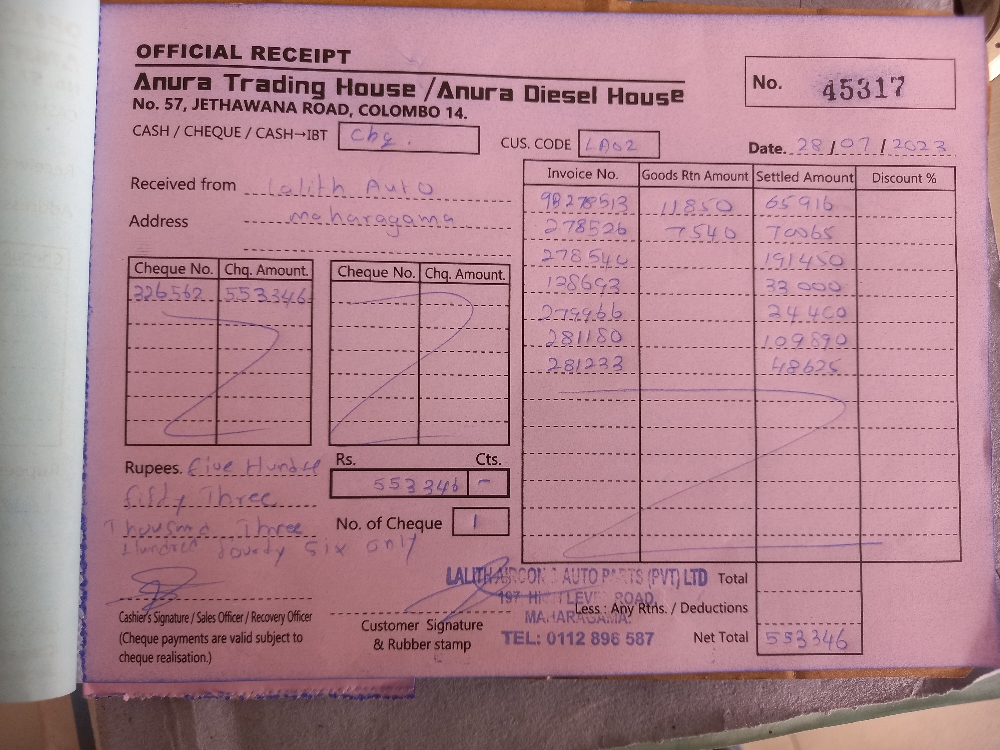 OFFICIAL RECEIPT
Anura Trading House / Anura Diesel House
No. 57, JETHAWANA ROAD, COLOMBO 14.
No. 45317
CASH / CHEQUE / CASH→IBT Chq.
CUS. CODE LA02
Date. 28 / 07 / 2023
Received from Lalith Auto
Address maharagama
Invoice No. Goods Rtn Amount Settled Amount Discount %
98278513 11850 65916
278526 7540 70065
278540 191450
128693 33000
279966 24400
281180 109890
281233 48625
Cheque No. Chq. Amount. Cheque No. Chq. Amount.
326562 553346
Rupees. Five Hundre
fifty Three
Thousand Three
Hundred fourty six only
Rs. Cts.
553346 -
No. of Cheque 1
LALITH AIRCON & AUTO PARTS (PVT) LTD
197 HIGH LEVEL ROAD,
MAHARAGAMA.
TEL: 0112 896 587
Total
Less : Any Rtns. / Deductions
Net Total 553346
Cashier's Signature / Sales Officer / Recovery Officer
(Cheque payments are valid subject to
cheque realisation.)
Customer Signature
& Rubber stamp